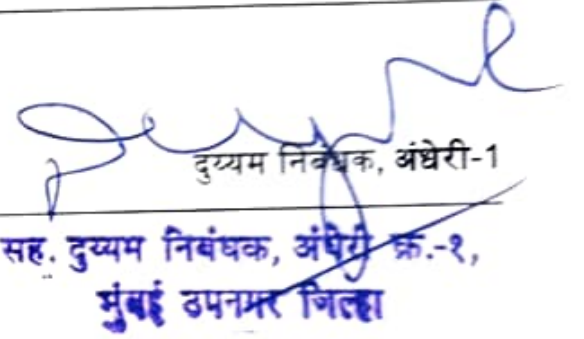 दुय्यम निबंधक, अंधेरी-1
सह. दुय्यम निबंधक, अंधेरी क्र.-१,
मुंबई उपनगर जिल्हा